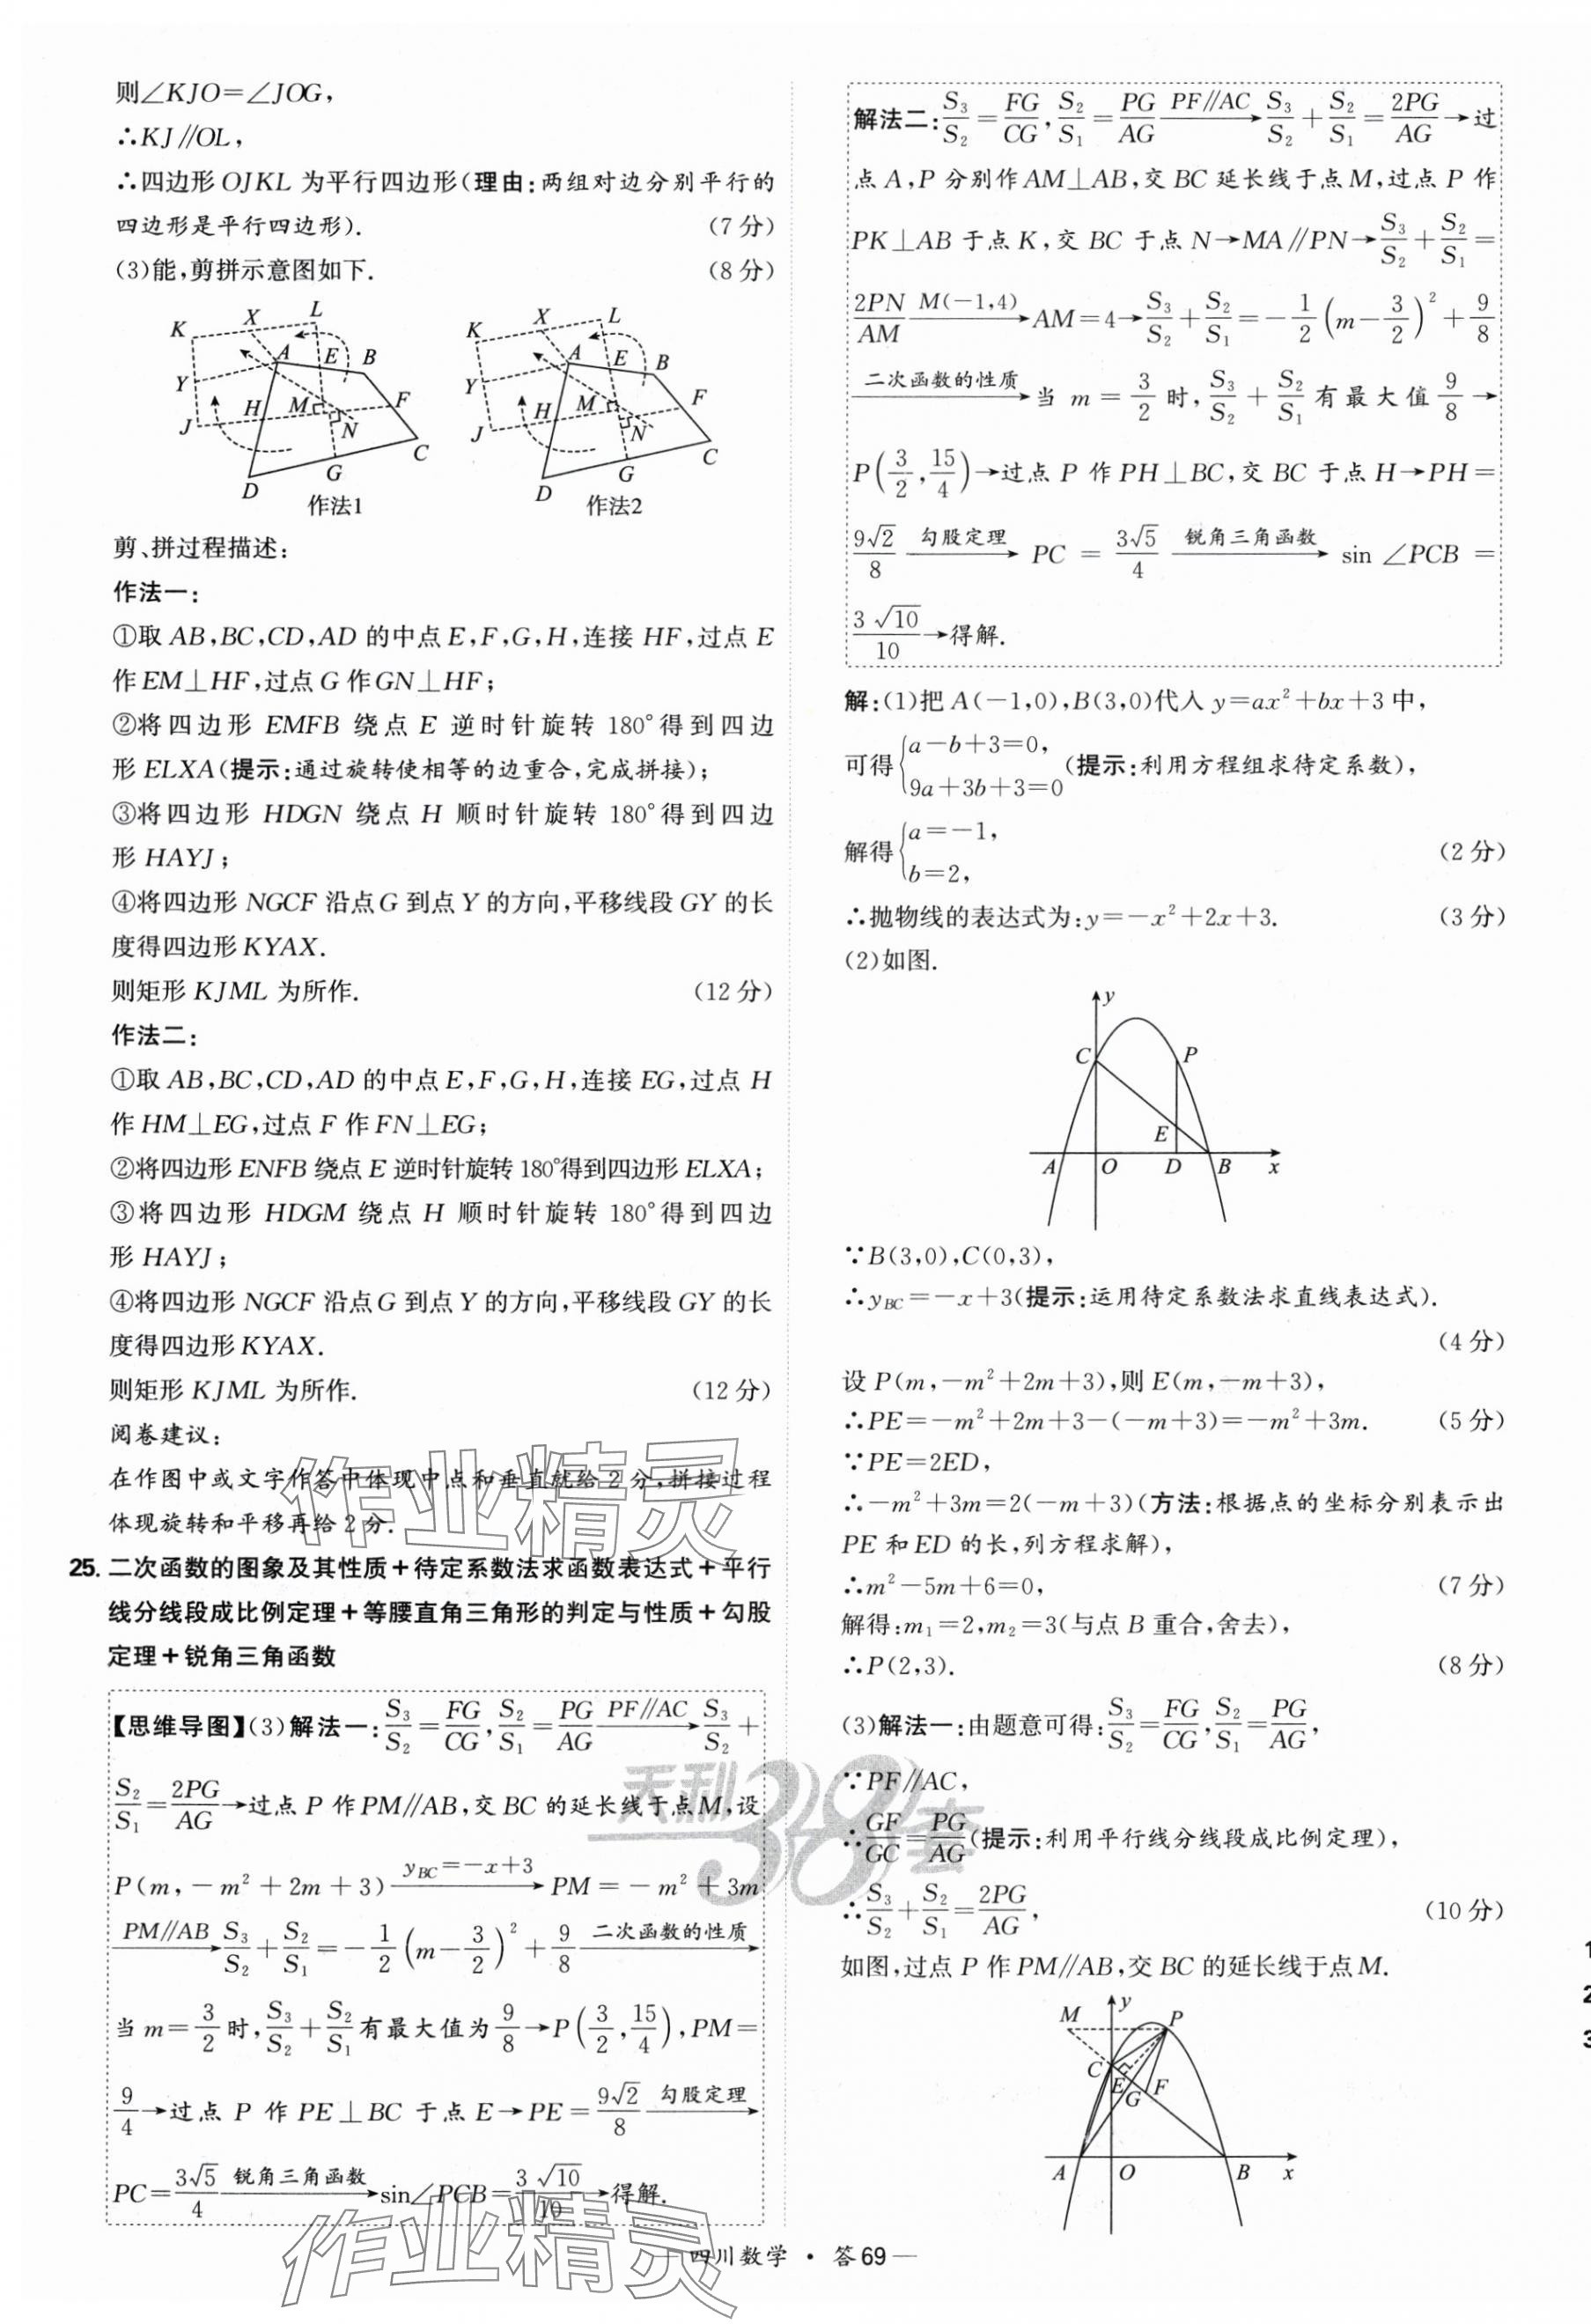 则∠KJO=∠JOG,
∴KJ∥OL,
∴四边形OJKL为平行四边形(理由:两组对边分别平行的
四边形是平行四边形). (7分)
(3)能,剪拼示意图如下. (8分)
K X L A E B Y H M F J N C G D
作法1
K X L A E B Y H M F J N C G D
作法2
剪、拼过程描述:
作法一:
①取AB,BC,CD,AD的中点E,F,G,H,连接HF,过点E
作EM⊥HF,过点G作GN⊥HF;
②将四边形EMFB绕点E逆时针旋转180°得到四边
形ELXA(提示:通过旋转使相等的边重合,完成拼接);
③将四边形HDGN绕点H顺时针旋转180°得到四边
形HAYJ;
④将四边形NGCF沿点G到点Y的方向,平移线段GY的长
度得四边形KYAX.
则矩形KJML为所作. (12分)
作法二:
①取AB,BC,CD,AD的中点E,F,G,H,连接EG,过点H
作HM⊥EG,过点F作FN⊥EG;
②将四边形ENFB绕点E逆时针旋转180°得到四边形ELXA;
③将四边形HDGM绕点H顺时针旋转180°得到四边
形HAYJ;
④将四边形NGCF沿点G到点Y的方向,平移线段GY的长
度得四边形KYAX.
则矩形KJML为所作. (12分)
阅卷建议:
在作图中或文字作答中体现中点和垂直就给2分,拼接过程
体现旋转和平移再给2分.
25. 二次函数的图象及其性质+待定系数法求函数表达式+平行
线分线段成比例定理+等腰直角三角形的判定与性质+勾股
定理+锐角三角函数
【思维导图】(3)解法一:S₃/S₂=FG/CG,S₂/S₁=PG/AG —PF∥AC→ S₃/S₂+
S₂/S₁=2PG/AG→过点P作PM∥AB,交BC的延长线于点M,设
P(m,-m²+2m+3) —y_BC=-x+3→ PM=-m²+3m
—PM∥AB→ S₃/S₂+S₂/S₁=-1/2(m-3/2)²+9/8 —二次函数的性质→
当m=3/2时,S₃/S₂+S₂/S₁有最大值为9/8→P(3/2,15/4),PM=
9/4→过点P作PE⊥BC于点E→PE=9√2/8 —勾股定理→
PC=3√5/4 —锐角三角函数→ sin∠PCB=3√10/10→得解.
解法二:S₃/S₂=FG/CG,S₂/S₁=PG/AG —PF∥AC→ S₃/S₂+S₂/S₁=2PG/AG→过
点A,P分别作AM⊥AB,交BC延长线于点M,过点P作
PK⊥AB于点K,交BC于点N→MA∥PN→S₃/S₂+S₂/S₁=
2PN/AM —M(-1,4)→ AM=4→S₃/S₂+S₂/S₁=-1/2(m-3/2)²+9/8
—二次函数的性质→ 当m=3/2时,S₃/S₂+S₂/S₁有最大值9/8→
P(3/2,15/4)→过点P作PH⊥BC,交BC于点H→PH=
9√2/8 —勾股定理→ PC=3√5/4 —锐角三角函数→ sin∠PCB=
3√10/10→得解.
解:(1)把A(-1,0),B(3,0)代入y=ax²+bx+3中,
可得{a-b+3=0, 9a+3b+3=0(提示:利用方程组求待定系数),
解得{a=-1, b=2, (2分)
∴抛物线的表达式为:y=-x²+2x+3. (3分)
(2)如图.
y C P E A O D B x
∵B(3,0),C(0,3),
∴y_BC=-x+3(提示:运用待定系数法求直线表达式).
(4分)
设P(m,-m²+2m+3),则E(m,-m+3),
∴PE=-m²+2m+3-(-m+3)=-m²+3m. (5分)
∵PE=2ED,
∴-m²+3m=2(-m+3)(方法:根据点的坐标分别表示出
PE和ED的长,列方程求解),
∴m²-5m+6=0, (7分)
解得:m₁=2,m₂=3(与点B重合,舍去),
∴P(2,3). (8分)
(3)解法一:由题意可得:S₃/S₂=FG/CG,S₂/S₁=PG/AG,
∵PF∥AC,
∴GF/GC=PG/AG(提示:利用平行线分线段成比例定理),
∴S₃/S₂+S₂/S₁=2PG/AG, (10分)
如图,过点P作PM∥AB,交BC的延长线于点M.
y M P C E F G A O B x
四川数学 · 答69
作业精灵
天利38套
作业精灵
1
2
3